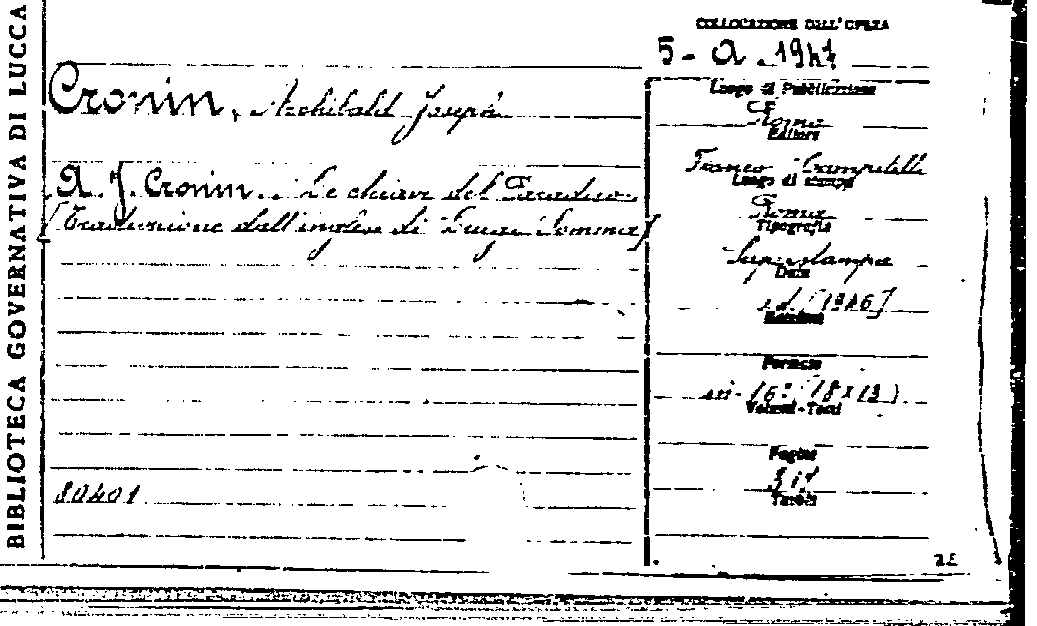 BIBLIOTECA GOVERNATIVA DI LUCCA
COLLOCAZIONE DELL'OPERA
5 - A. 1947
Cronin, Archibald Joseph
A. J. Cronin.. Le chiavi del Paradiso.
[Traduzione dall'inglese di Luigi Somma]
80401
Luogo di Pubblicazione
Roma
Editore
Franco Campitelli
Luogo di stampa
Roma
Tipografia
Sup. stampa
Data
s.d. [1946]
Edizione
Formato
in-16° (18x13)
Volumi-Tomi
Pagine
Tavole